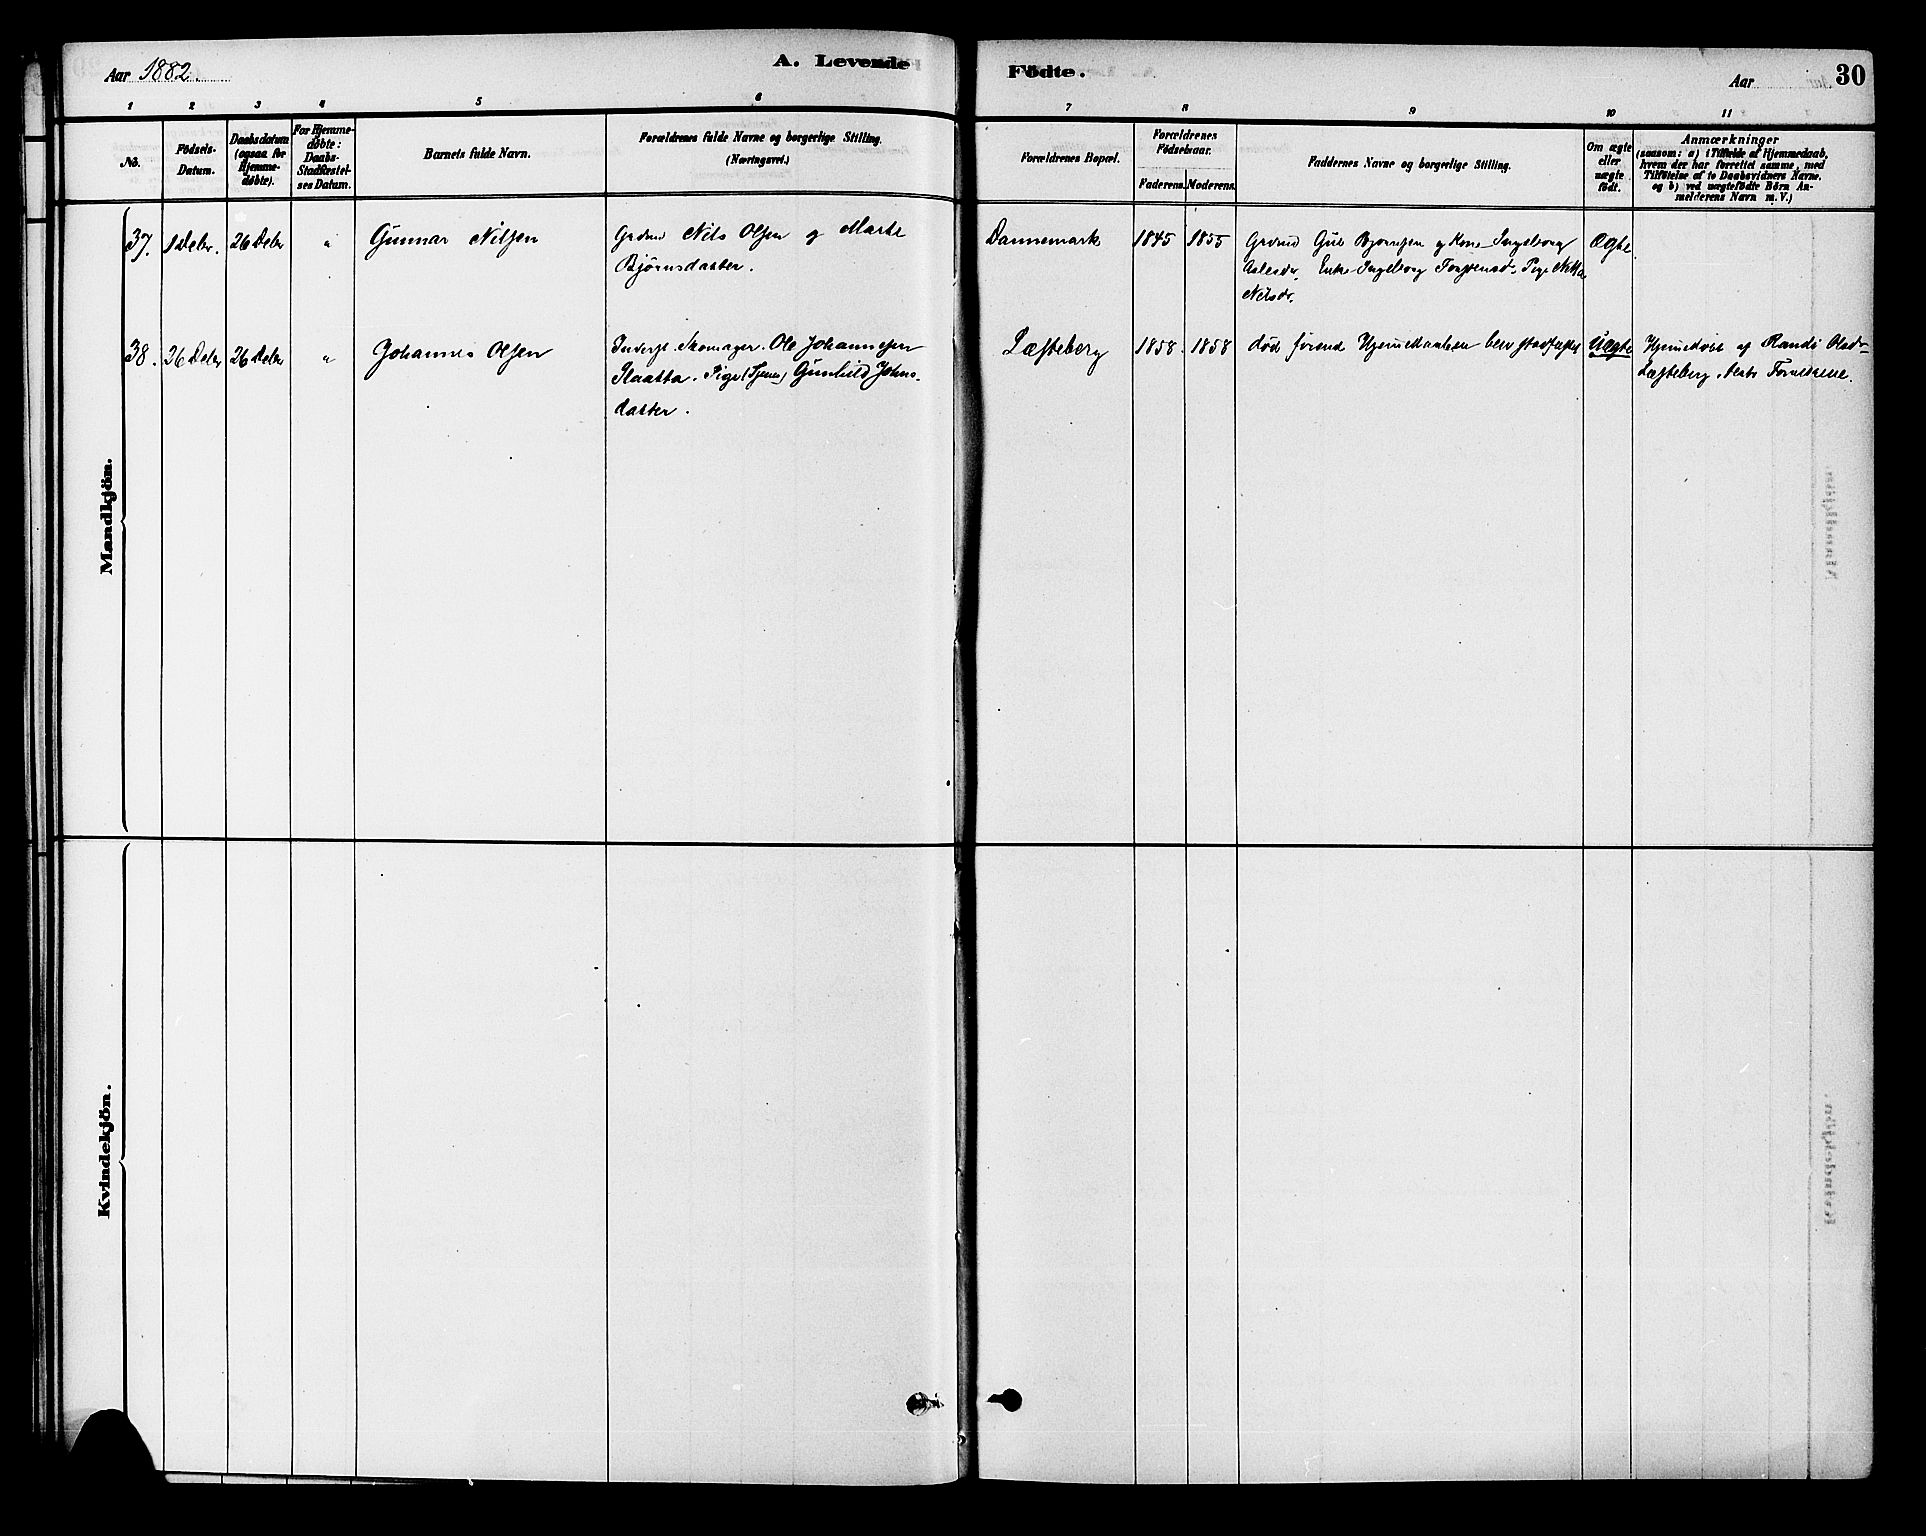 Aar 1882.
A. Levende
Födte.
Aar
30
1 2 3 4 5 6 7 8 9 10 11
No.
Födsels-
Datum.
Daabsdatum
(ogsaa for
Hjemme-
döbte).
For Hjemme-
döbte:
Daabs-
Stadfæstel-
ses Datum.
Barnets fulde Navn.
Forældrenes fulde Navne og borgerlige Stilling.
(Næringsvei.)
Forældrenes Bopæl.
Forældrenes
Födselsaar.
Faderens. Moderens.
Faddernes Navne og borgerlige Stilling.
Om ægte
eller
uægte
födt.
Anmærkninger
(saasom: a) i Tilfælde af Hjemmedaab,
hvem der har forrettet samme, med
Tilföielse af to Daabsvidners Navne,
og b) ved uægtefödte Börn An-
melderens Navn m. V.)
Mandkjön.
37. 1 Decbr. 26 Decbr " Gunnar Nilsen
Grdmd Nils Olsen og Marte
Björnsdatter.
Dannemark 1845 1855
Grdmd Gul. Bjornsen og Kone Ingeborg
Aslesdr, Enke Ingeborg Torstensd. Pige
Nilsdr.
Ægte
38. 26 Decbr 26 Decbr " Johannes Olsen
Inderst. Skomager. Ole Johannesen
Pige (Tjener) Gunhild Johns-
datter.
Læsteberg 1858. 1858
död förend Hjemmedaaben blev stadfæstet
Uægte
Hjemmedöbt af Randi Olsdr
Læsteberg, Forældrene.
Kvindekjön.